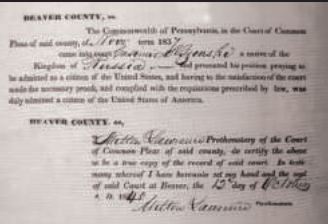 BEAVER COUNTY, ss.
The Commonwealth of Pennsylvania, in the Court of Common
Pleas of said county, of Nov. term 183
came into court a native of the
Kingdom of Russia and presented his petition praying to
be admitted a citizen of the United States, and having to the satisfaction of the court
made the necessary proof, and complied with the requisitions prescribed by law, was
duly admitted a citizen of the United States of America.
BEAVER COUNTY, ss.
I, Milton Lawrence Prothonotary of the Court
of Common Pleas of said county, do certify the above
to be a true copy of the record of said court. In testi-
mony whereof I have hereunto set my hand and the seal
of said Court at Beaver, the day of October
A. D. 184
Milton Lawrence Prothonotary